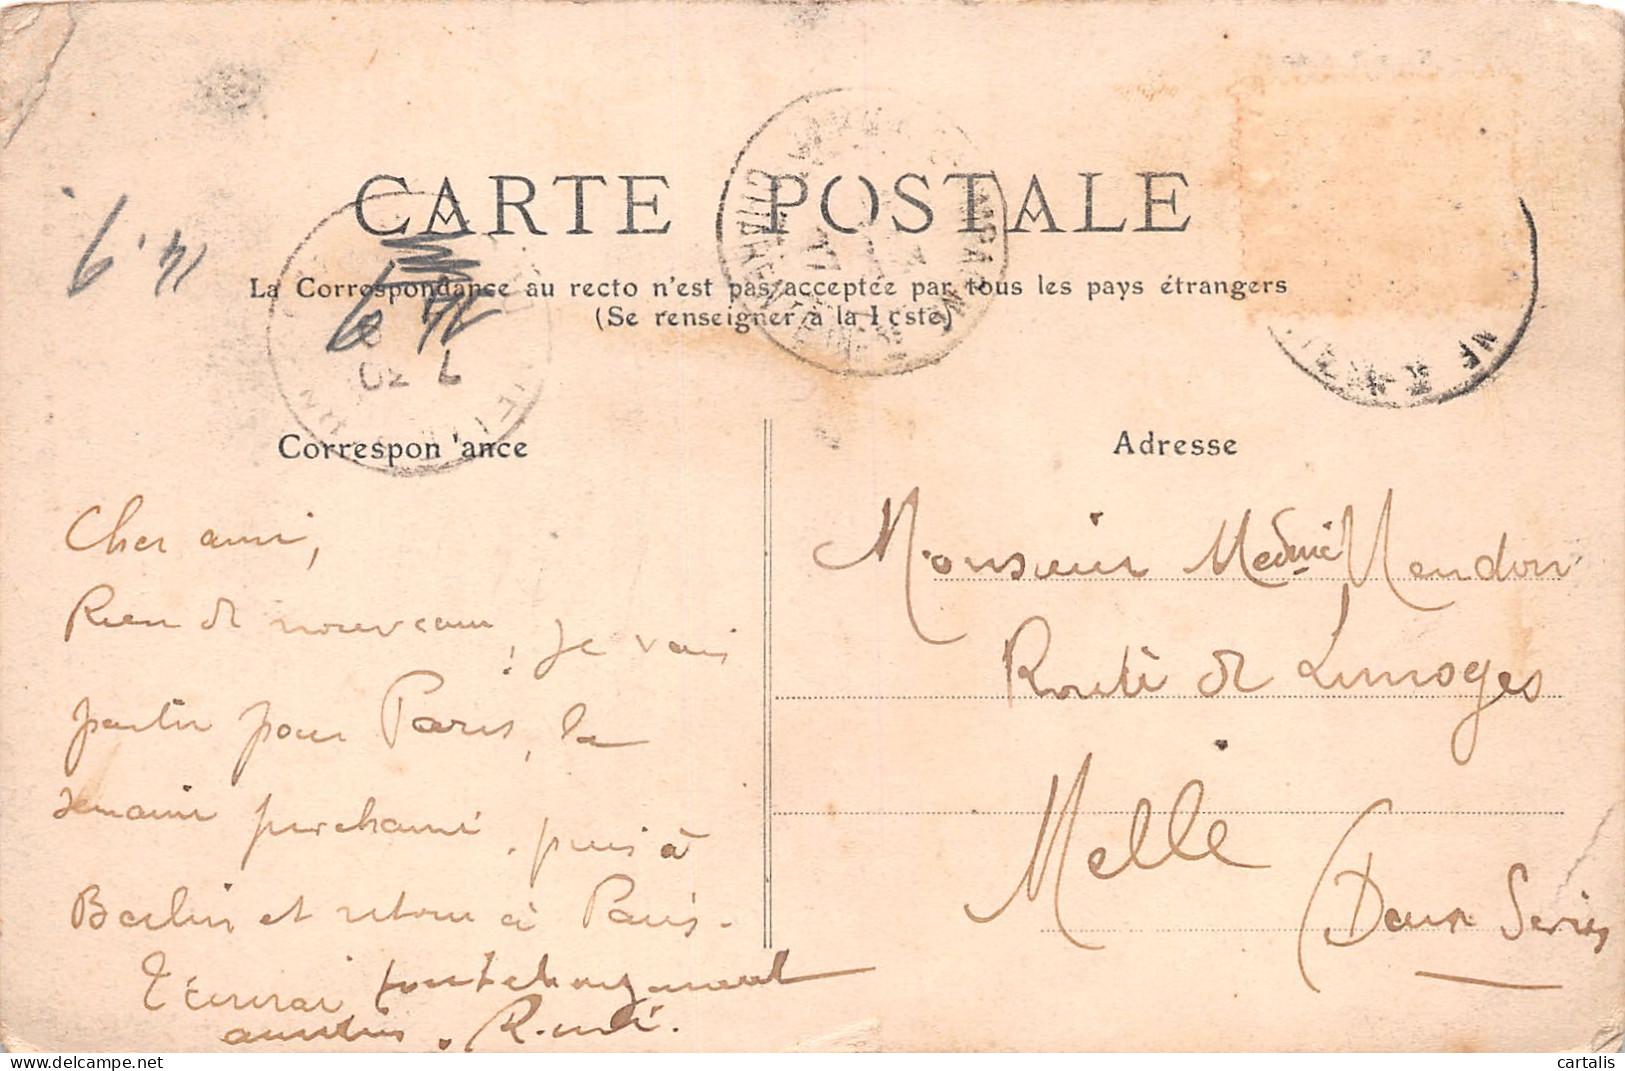 CARTE POSTALE
La Correspondance au recto n'est pas acceptée par tous les pays étrangers
(Se renseigner à la Poste)
14.9
Correspon 'ance
Adresse
Cher ami,
Rien de nouveau, je vais
partir pour Paris, la
semaine prochaine, puis à
Berlin et retour à Paris.
T'écrirai tout changement
R.
Monsieur
Route de Limoges
Melle
(Deux Sevres
cartalis